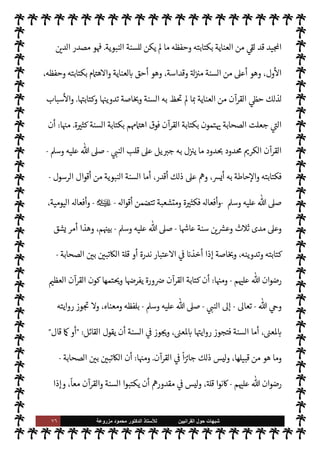 المجيد قد لقي من العناية بكتابته وحفظه ما لم يكن للسنة النبوية. فهو مصدر الدين
الأول، وهو أعلى من السنة منزلة وقداسة، وهو أحق بالعناية والاهتمام بكتابته وحفظه،
لذلك حظي القرآن من العناية بما لم تحظ به السنة وبخاصة تدوينها وكتابتها. والأسباب
التي جعلت الصحابة يهتمون بكتابة القرآن فوق اهتمامهم بكتابة السنة كثيرة. منها: أن
القرآن الكريم محدود بحدود ما ينزل به جبريل على قلب النبي - صلى الله عليه وسلم -
فكتابته والإحاطة به أيسر، وهم على ذلك أقدر، أما السنة النبوية من أقوال الرسول -
صلى الله عليه وسلم - وأفعاله فكثيرة ومتشعبة تتضمن أقواله - ﷺ - وأفعاله اليومية،
وعلى مدى ثلاث وعشرين سنة عاشها - صلى الله عليه وسلم - بينهم، وهذا أمر يشق
كتابته وتدوينه، وبخاصة إذا أخذنا في الاعتبار ندرة أو قلة الكاتبين بين الصحابة -
رضوان الله عليهم - ومنها: أن كتابة القرآن ضرورة يفرضها ويحتمها كون القرآن العظيم
وحي الله - تعالى - إلى النبي - صلى الله عليه وسلم - بلفظه ومعناه، ولا تجوز روايته
بالمعنى، أما السنة فتجوز روايتها بالمعنى، ويجوز في السنة أن يقول القائل: "أو كما قال"
وما هو من قبيلها، وليس ذلك جائزاً في القرآن. ومنها: أن الكاتبين بين الصحابة -
رضوان الله عليهم - كانوا قلة، وليس في مقدورهم أن يكتبوا السنة والقرآن معاً، وإذا
شبهات حول القرآنيين للأستاذ الدكتور محمود مزروعة ٧٦